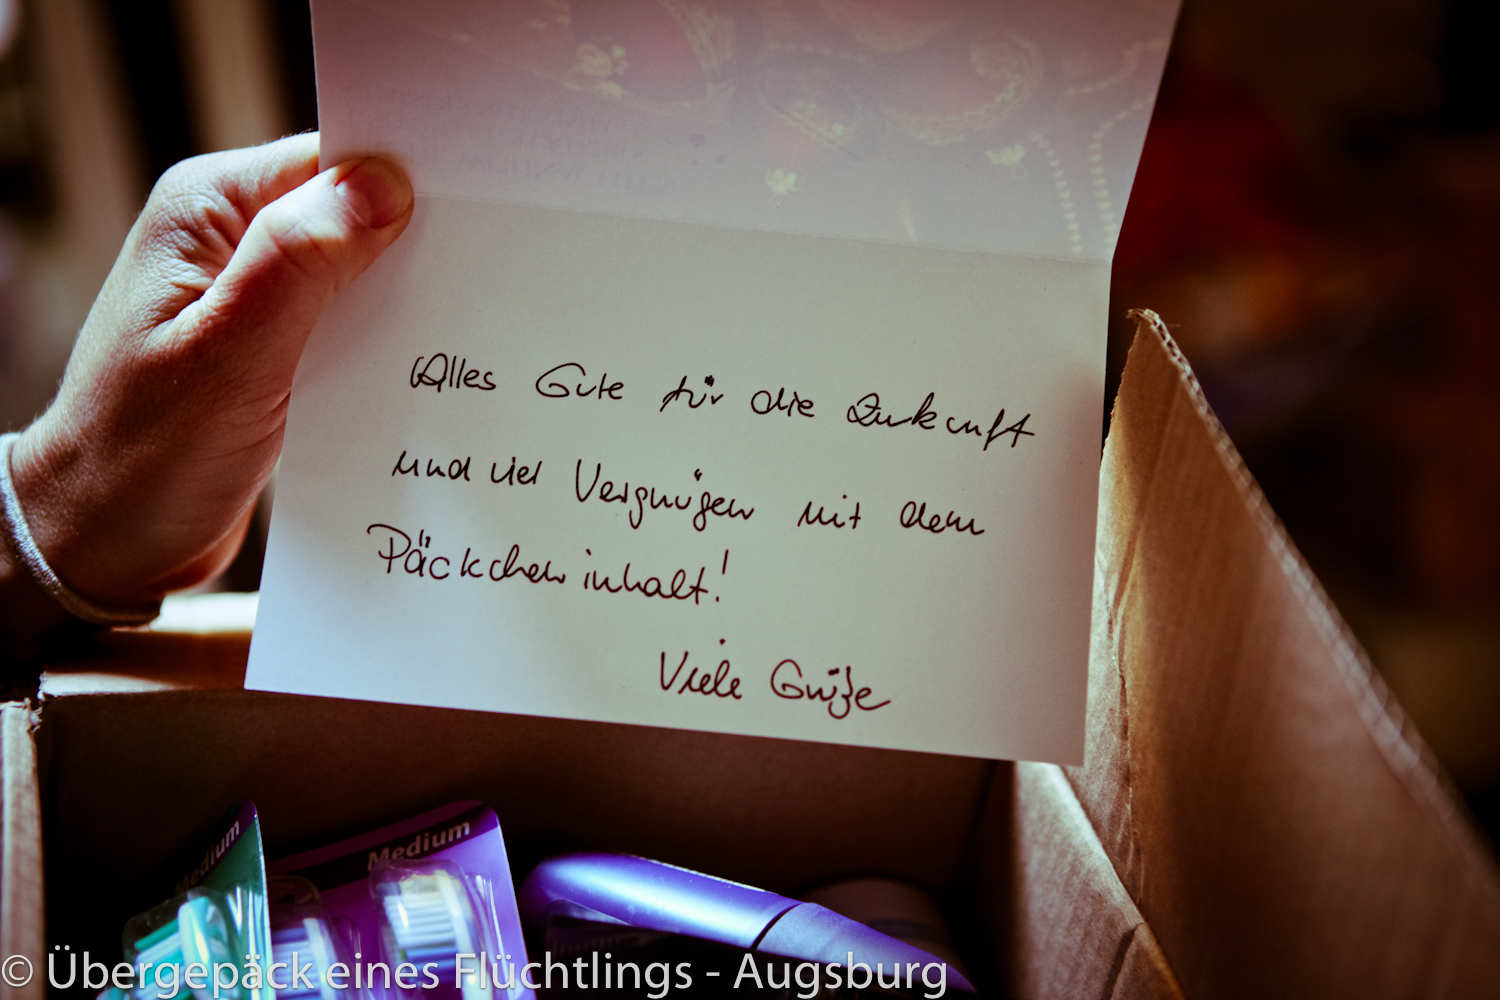 Alles Gute für die Zukunft
und viel Vergnügen mit dem
Päckcheninhalt!
Viele Grüße
Medium
Medium
© Übergepäck eines Flüchtlings - Augsburg